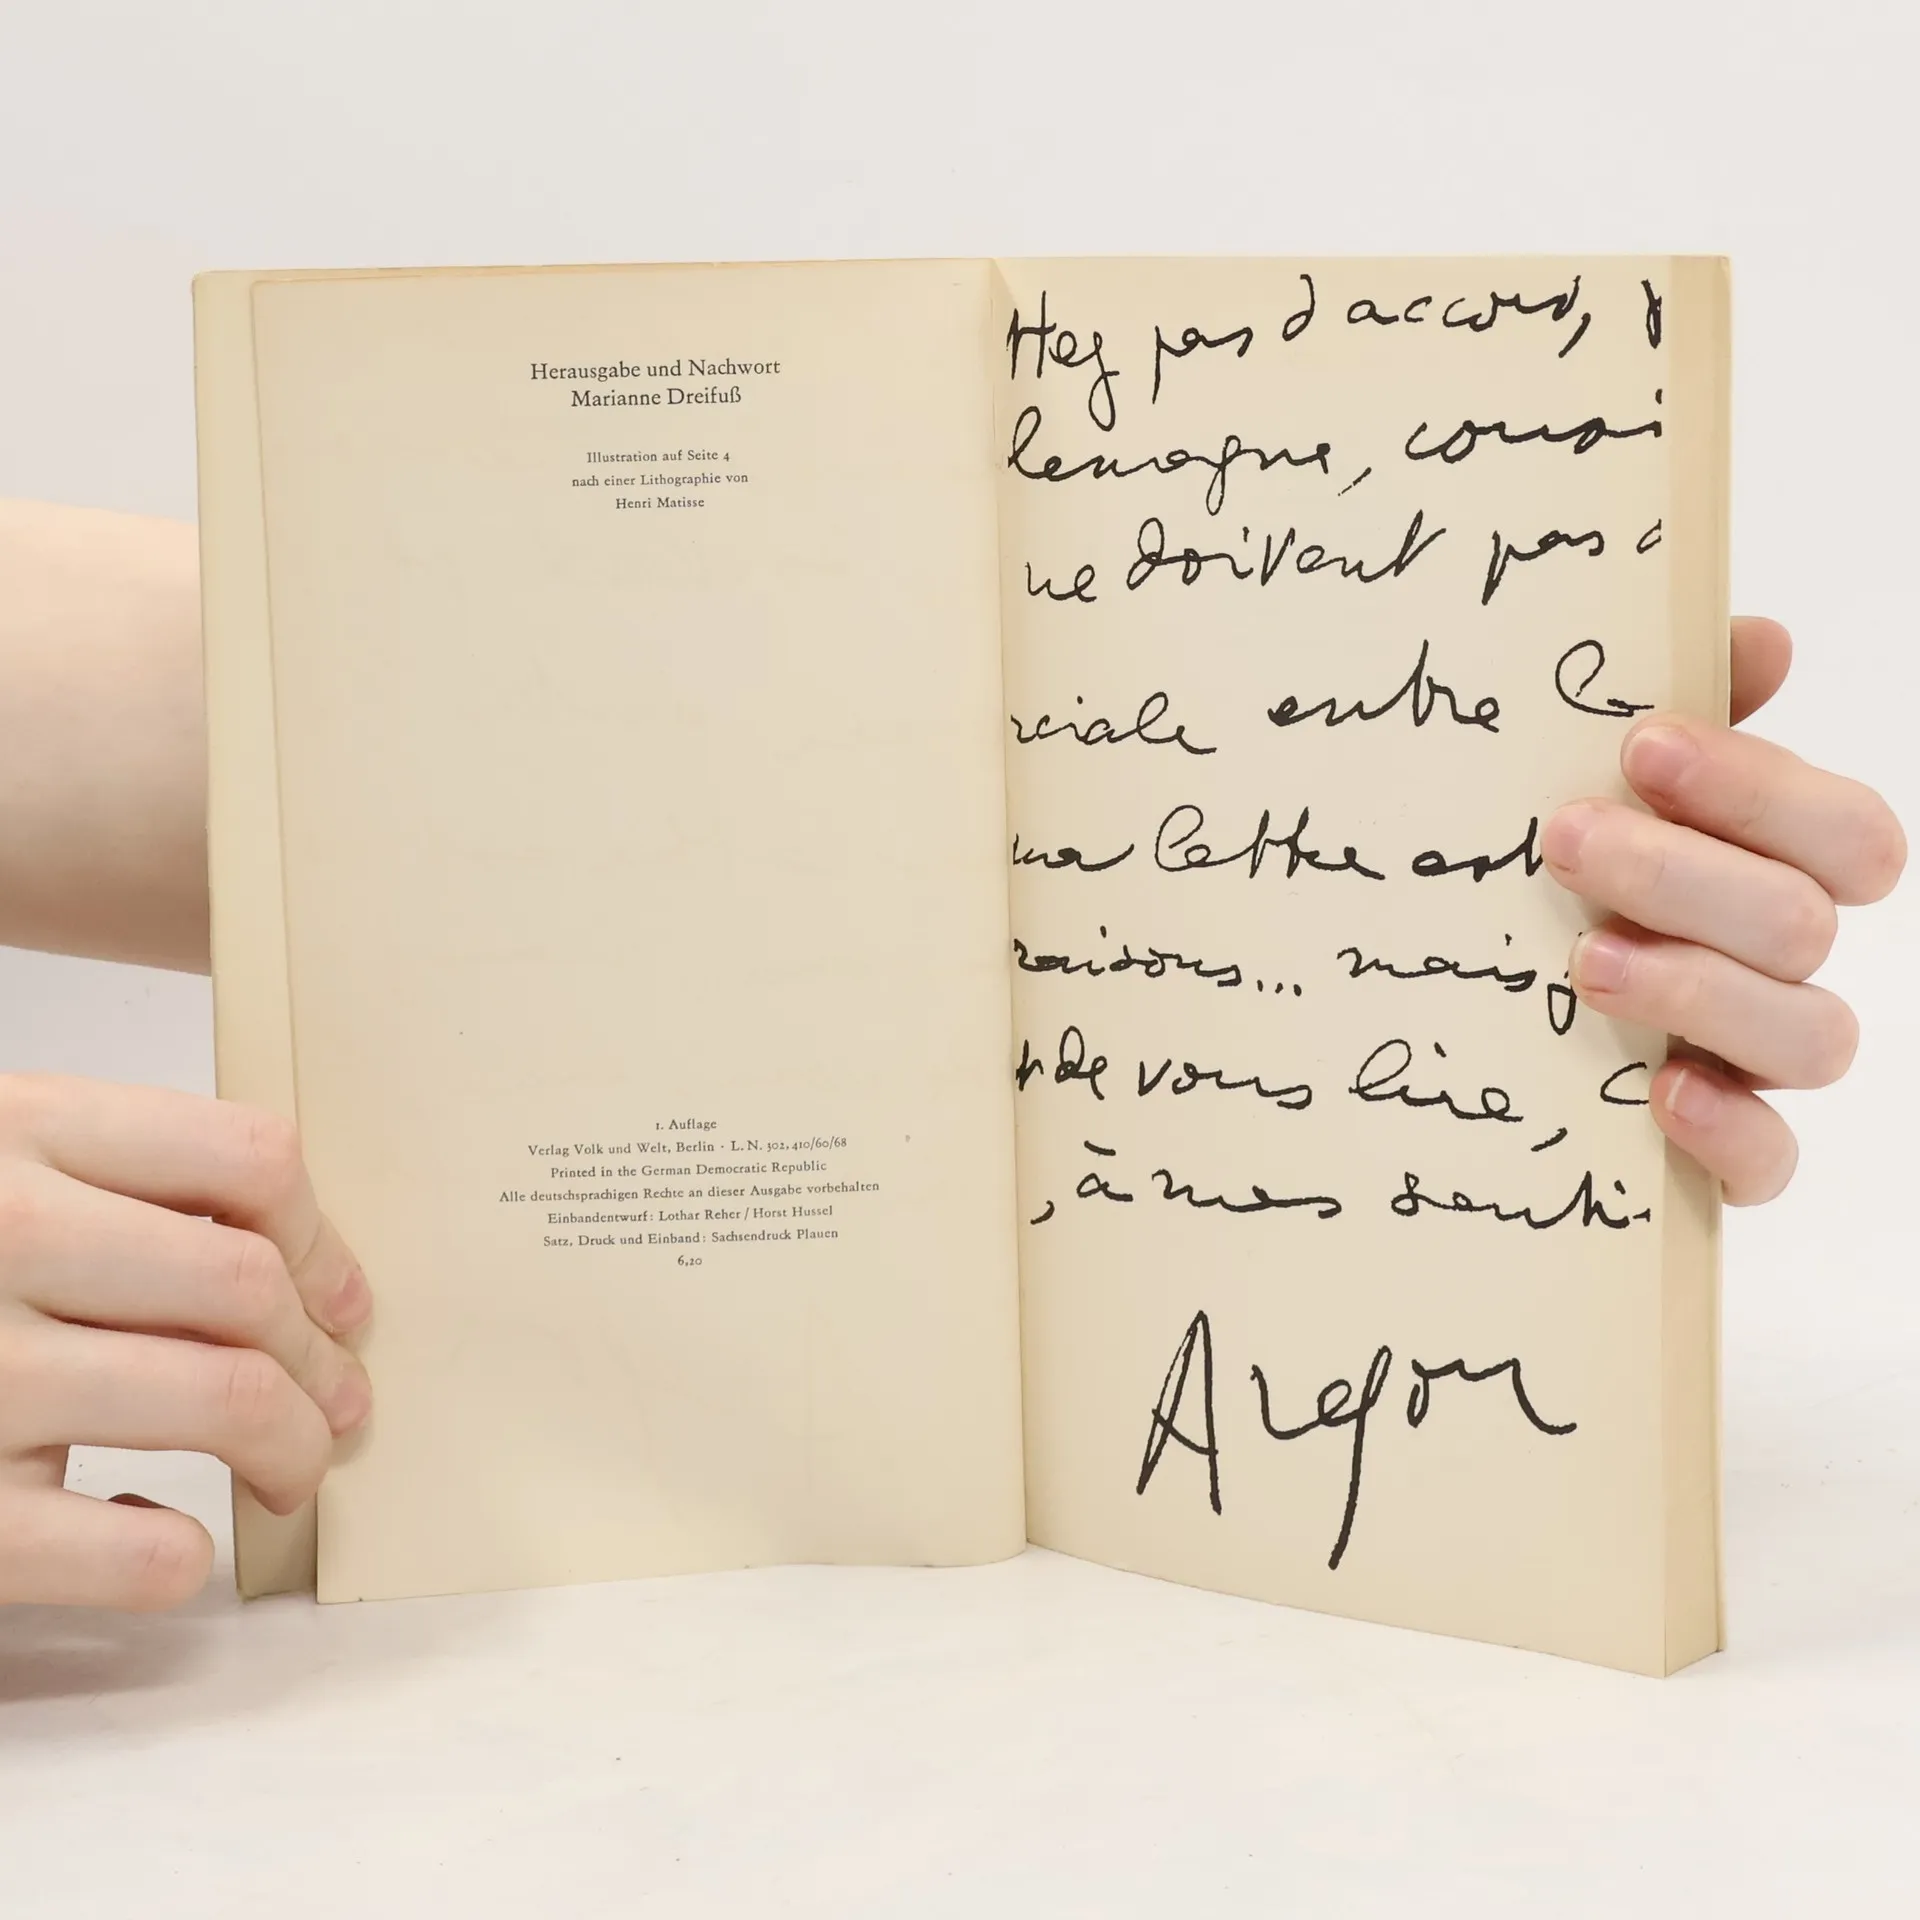 Herausgabe und Nachwort
Marianne Dreifuß
Illustration auf Seite 4
nach einer Lithographie von
Henri Matisse
1. Auflage
Verlag Volk und Welt, Berlin · L. N. 302, 410/60/68
Printed in the German Democratic Republic
Alle deutschsprachigen Rechte an dieser Ausgabe vorbehalten
Einbandentwurf: Lothar Reher / Horst Hussel
Satz, Druck und Einband: Sachsendruck Plauen
6,20
ttez pas d'accord,
lemagne,
ne doivent pas
rciale entre le
ma lettre est
raisons... mais j
de vous lire,
, à mes senti-
Aragon